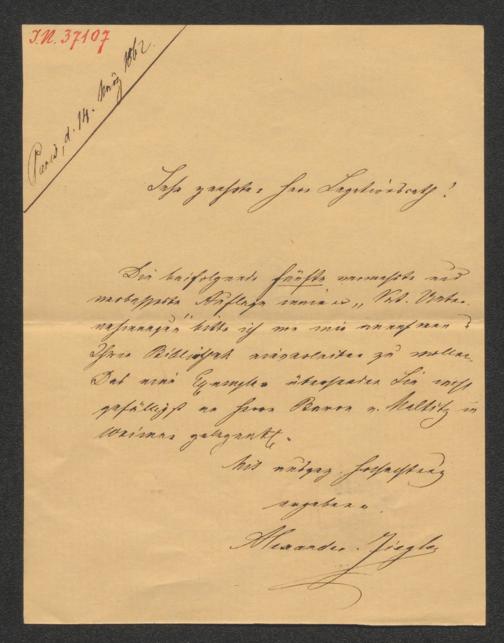 I.N. 37107
Paris, d. 14. März 1862.
Sehr geehrter Herr Legationsrath!
Die beifolgende fünfte vermehrte und
verbesserte Auflage meiner „
bitte ich von mir annehmen &
Ihrer Bibliothek einverleiben zu wollen.
Das eine Exemplar übersenden Sie wohl
gefälligst an Herrn Baron v. Maltitz in
Weimar gelegentl.
Mit ausgez. Hochachtung
ergebenst
Alexander Ziegler